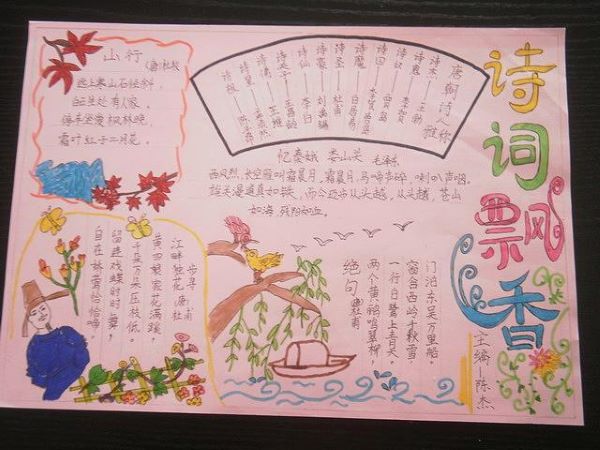 诗词飘香
主编—陈杰
山行
(唐)杜牧
远上寒山石径斜,
白云生处有人家。
停车坐爱枫林晚,
霜叶红于二月花。
唐朝诗人称
雅
诗杰——王勃
诗鬼——李贺
诗奴——贾岛
诗魔——白居易
诗圣——杜甫
诗豪——刘禹锡
诗仙——李白
诗天子——王昌龄
诗佛——王维
诗星——孟浩然
诗骨——陈子昂
忆秦娥 娄山关 毛泽东
西风烈,长空雁叫霜晨月,霜晨月,马啼声碎,喇叭声咽。
雄关漫道真如铁,而今迈步从头越,从头越,苍山
如海,残阳如血。
绝句 杜甫
两个黄鹂鸣翠柳,
一行白鹭上青天。
窗含西岭千秋雪,
门泊东吴万里船。
步寻
江畔独花 唐 杜甫
黄四娘家花满蹊,
千朵万朵压枝低。
留连戏蝶时时舞,
自在娇莺恰恰啼。